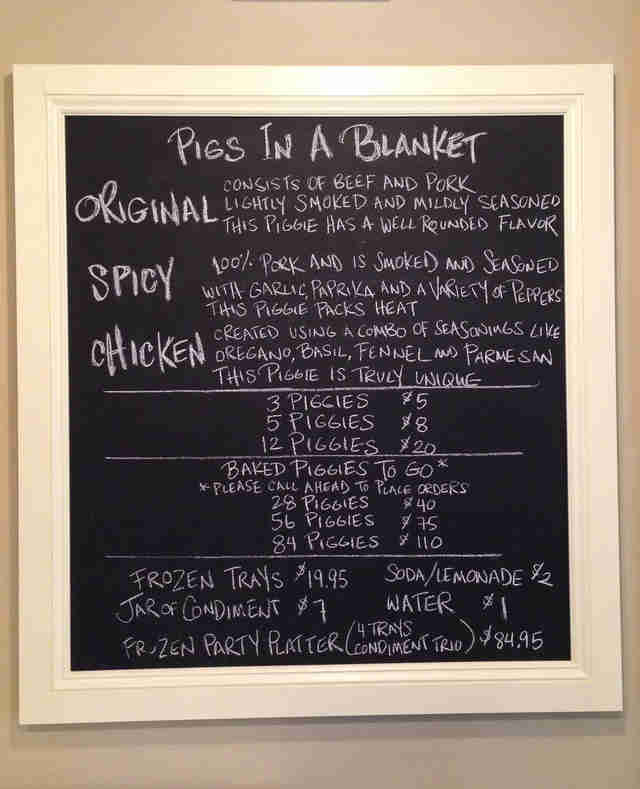 PIGS IN A BLANKET
ORIGINAL
CONSISTS OF BEEF AND PORK
LIGHTLY SMOKED AND MILDLY SEASONED
THIS PIGGIE HAS A WELL ROUNDED FLAVOR
SPICY
100% PORK AND IS SMOKED AND SEASONED
WITH GARLIC, PAPRIKA AND A VARIETY OF PEPPERS
THIS PIGGIE PACKS HEAT
CHICKEN
CREATED USING A COMBO OF SEASONINGS LIKE
OREGANO, BASIL, FENNEL AND PARMESAN
THIS PIGGIE IS TRULY UNIQUE
3 PIGGIES $5
5 PIGGIES $8
12 PIGGIES $20
BAKED PIGGIES TO GO*
*PLEASE CALL AHEAD TO PLACE ORDERS
28 PIGGIES $40
56 PIGGIES $75
84 PIGGIES $110
FROZEN TRAYS $19.95 SODA/LEMONADE $2
JAR OF CONDIMENT $7 WATER $1
FROZEN PARTY PLATTER (4 TRAYS CONDIMENT TRIO) $84.95